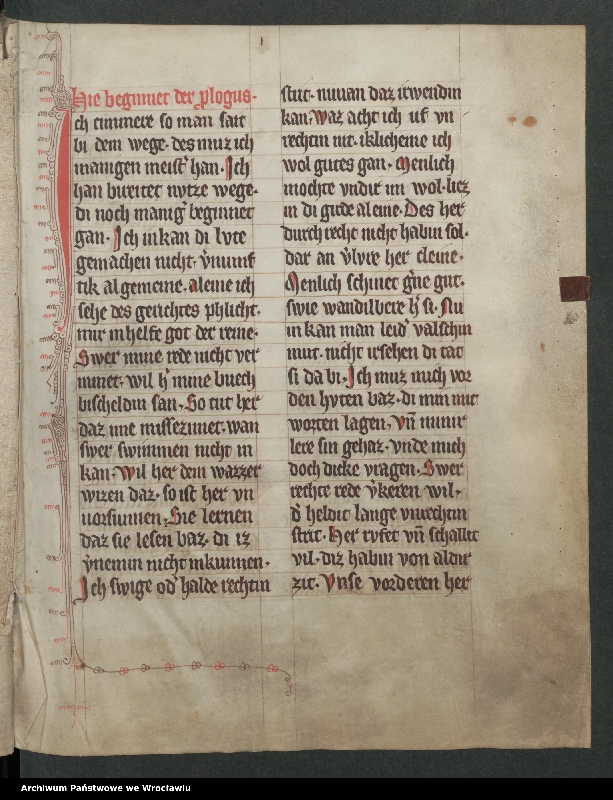 Hie beginnet der plogus·
Ich cimmere so man sait
bi dem wege· des muz ich
manigen meist' han· Ich
han bireitet nvtze wege·
di noch manig' beginnet
gan· Ich inkan di lvte
gemachen nicht· v'nunf
tik al gemeine· aleine ich
sehe des gerichtes phlicht·
mir inhelfe got der reine·
Swer mine rede nicht ver
nimet· wil h' mine buech
bischeldin san· So tut her
daz ime missezimet· wan
swer swimmen nicht in
kan· Wil her dem wazzer
wizen daz· so ist her vn
uorsunnen· Sie lernen
daz sie lesen baz· di iz
v'nemin nicht inkunnen·
Ich swige od' halde rechtin
strit· nuwan daz irwendin
kan· Waz acht ich uf vn
rechtin nit· iklicheme ich
wol gutes gan· Menlich
mochte vndir im wol· liez
in di gude aleine· Des her
durch recht nicht habin sol·
dar an v'lvre her cleine·
Menlich schinet g'ne gut·
swie wandilbere h' si· Nu
in kan man leid' valschin
mut· nicht irsehen di tat
si da bi· Ich muz mich vor
den hvten baz· di min mit
worten lagen· Vn̄ minir
lere sin gehaz· vnde mich
doch dicke vragen· Swer
rechte rede v'keren wil·
d' heldit lange vnrechtin
strit· Her rvfet vn̄ schallit
vil· diz habin von aldir
zit· Vnse vorderen her
Archiwum Państwowe we Wrocławiu